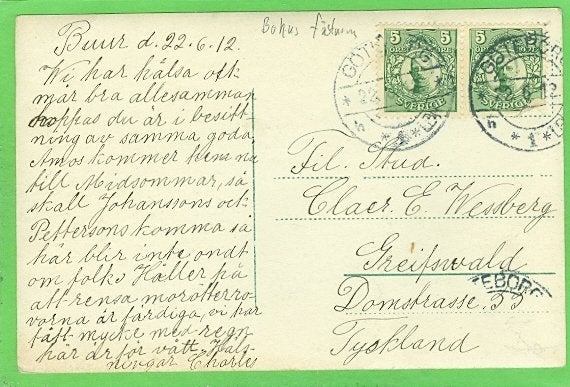 Bohus fästn
Buur d. 22.6.12.
Wi har hälsa och
mår bra allesamman
hoppas du är i besitt
ning av samma goda.
Amos kommer hem nu
till Midsommar, så
skall Johanssons och
Pettersons komma så
här blir inte ondt
om folk. Håller på
att rensa morötter ro
vorna är färdiga, vi har
fått mycke med regn
här är för vått. Häls-
ningar Charles
5 5
ÖRE ÖRE
SVERIGE SVERIGE
GÖTEBORG
GÖTEBORG
22 6 12
* 1 *
TEBORG
Fil. Stud.
Claes E. Wessberg
Greifswald
Domstrasse 33
Tyskland